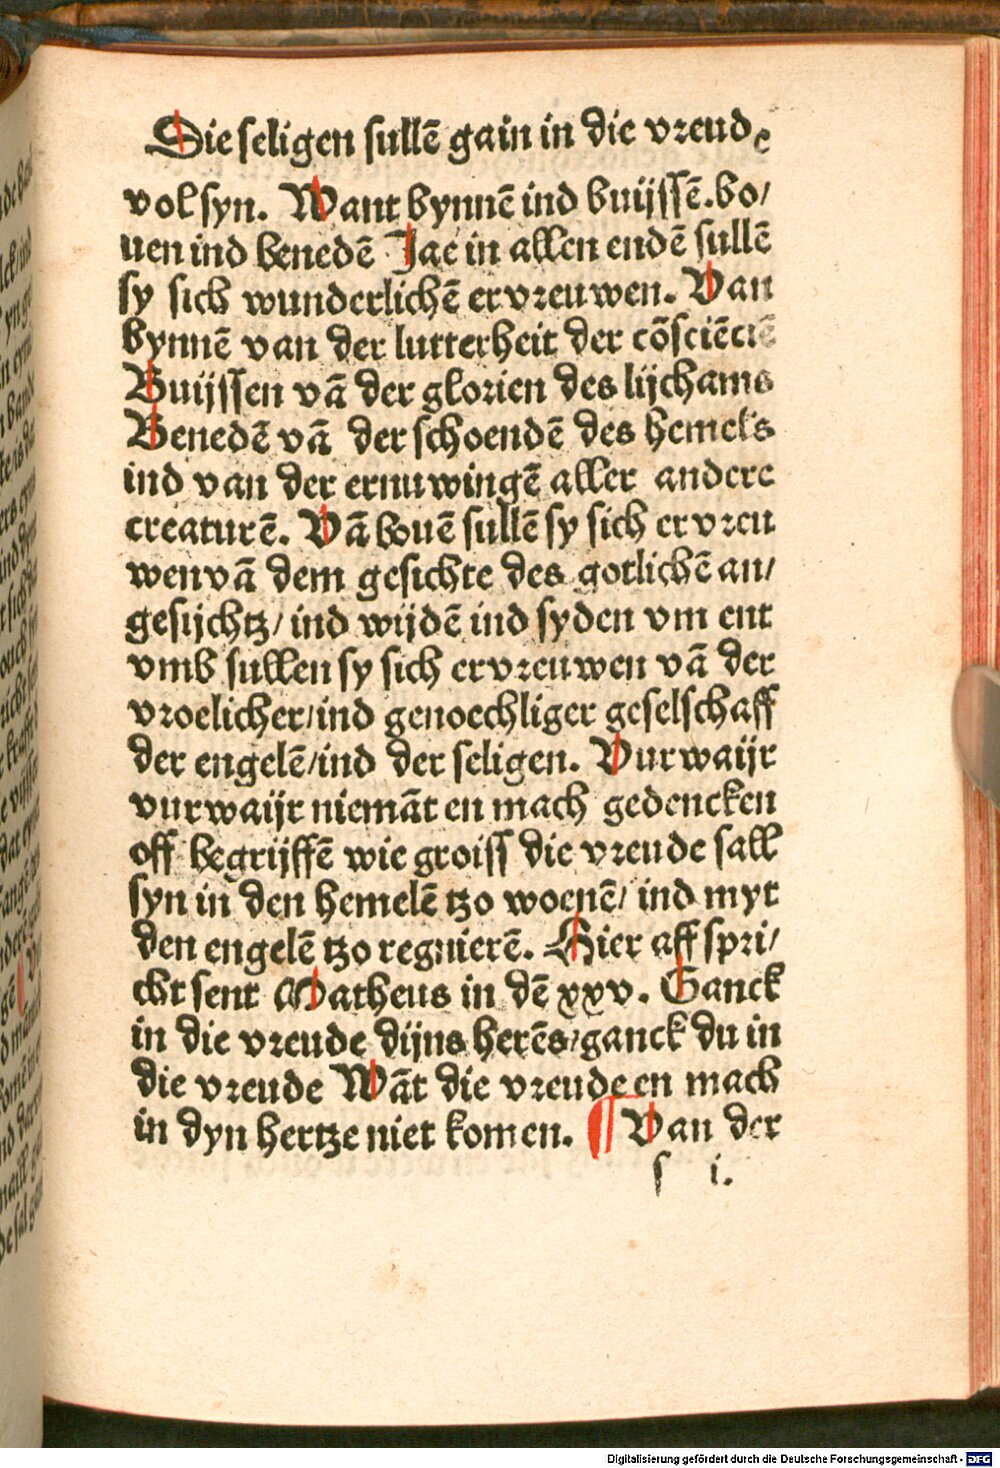 Die seligen sullē gain in die vreude
vol syn. Want bynnē ind buijssē. bo/
uen ind benedē Jae in allen endē sullē
sy sich wunderlichē ervreuwen. Van
bynnē van der lutterheit der cōsciēciē
Buijssen vā der glorien des lijchams
Benedē vā der schoendē des hemels
ind van der ernuwingē aller andere
creaturē. Vā bouē sullē sy sich ervreu
wen vā dem gesichte des gotlichē an/
gesijchtz/ ind wijdē ind syden vm ent
vmb sullen sy sich ervreuwen vā der
vroelicher/ ind genoechliger geselschaff
der engelē/ ind der seligen. Vurwaijr
vurwaijr niemāt en mach gedencken
off begrijffē wie groiss die vreude sall
syn in den hemelē tzo woenē/ ind myt
den engelē tzo regnierē. Hier aff spri/
cht sent Matheus in dē xxv. Ganck
in die vreude dijns herēs/ ganck du in
die vreude Wāt die vreude en mach
in dyn hertze niet komen. ¶ Van der
s i.
Digitalisierung gefördert durch die Deutsche Forschungsgemeinschaft - DFG